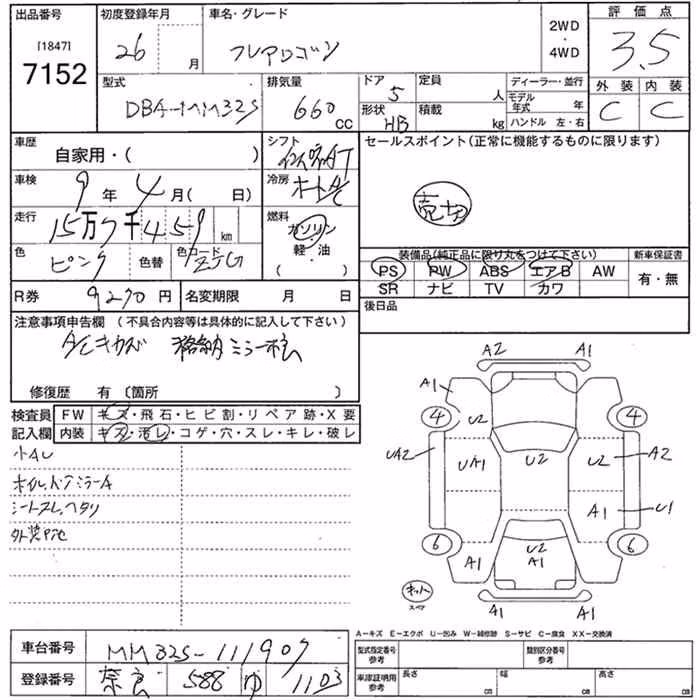 出品番号 初度登録年月 車名・グレード 評価点
[1847]
7152
26 月 フレアワゴン 2WD ・ 4WD 3.5
型式 排気量 ドア 定員 ディーラー・並行 外装 内装
DBA-MM32S 660 CC 5 人 モデル年式 年 C C
形状 HB 積載 kg ハンドル 左・右
車歴 シフト セールスポイント(正常に機能するものに限ります)
自家用・( )
車検 9年 4月( 日) 冷房 オートAC
売切
走行 15万7千459 km 燃料 ガソリン 軽・油 ( )
色 ピンク 色替 色コード
装備品(純正品に限り丸をつけて下さい) 新車保証書
PS PW ABS エアB AW 有・無
SR ナビ TV カワ
R券 9270円 名変期限 月 日 後日品
注意事項申告欄 (不具合内容等は具体的に記入して下さい)
格納ミラー
修復歴 有 〔箇所 〕
検査員 FW キズ・飛石・ヒビ割・リペア跡・X要
記入欄 内装 キズ・汚レ・コゲ・穴・スレ・キレ・破レ
小AU
シートスレ、ヘタリ
A2 A1
A1
④ U2 ④
UA2 UA1 U2 U2 A2
A1 U1
⑥ A1 U2 A1 A1 ⑥
キット
スペア
A1 A1
A−キズ E−エクボ U−凹み W−補修跡 S−サビ C−腐食 XX−交換済
車台番号 MM32S-111907
登録番号 奈良 588 ゆ 1103
型式指定番号 参考 類別区分番号 参考
車庫証明用 参考 長さ cm 幅 cm 高さ cm